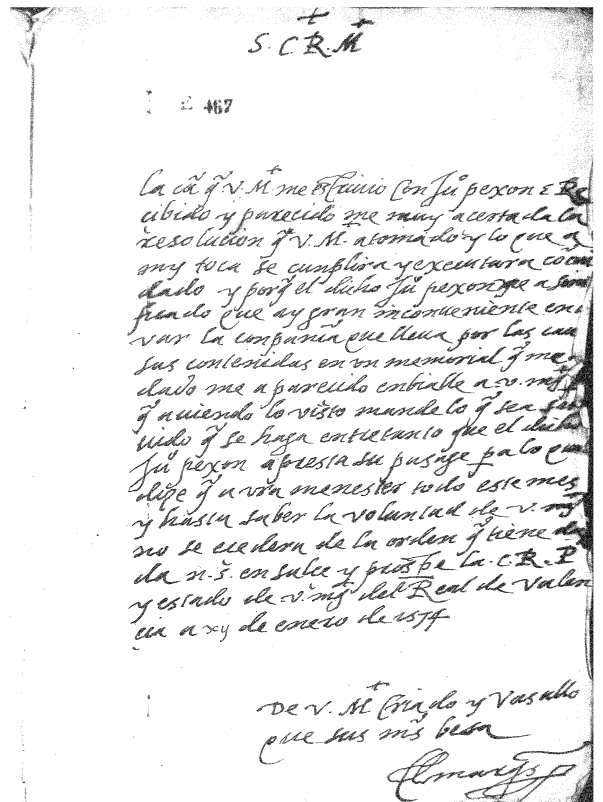 S. C. R. M.
E 467
la cā q̄ v. M. me escrivio con Juº pexon e Re
cibido y parecido me muy acertada la
resolucion q̄ v. M. a tomado y lo que a
my toca se cunplira y executara co
dado y porq̄ el dicho Juº pexon me a sini
ficado que ay gran inconveniente en
var la conpañia que lleva por las cau
sas contenidas en un memorial q̄ me a
dado me a parecido enbialle a v. mḡ p
q̄ aviendo lo visto mande lo q̄ sea ser
vido q̄ se haga entretanto que el dicho
Juº pexon apresta su pasage pa lo qual
dize q̄ avra menester todo este mes
y hasta saber la voluntad de v. mḡ
no se ecedera de la orden q̄ tiene
da n. s. ensalce y prospe la. c. R. P
y estado de v. mḡ del Real de Valen
cia a xy de enero de 1574
De v. M. criado y vasallo
que sus mˢ besa
El marqˢ